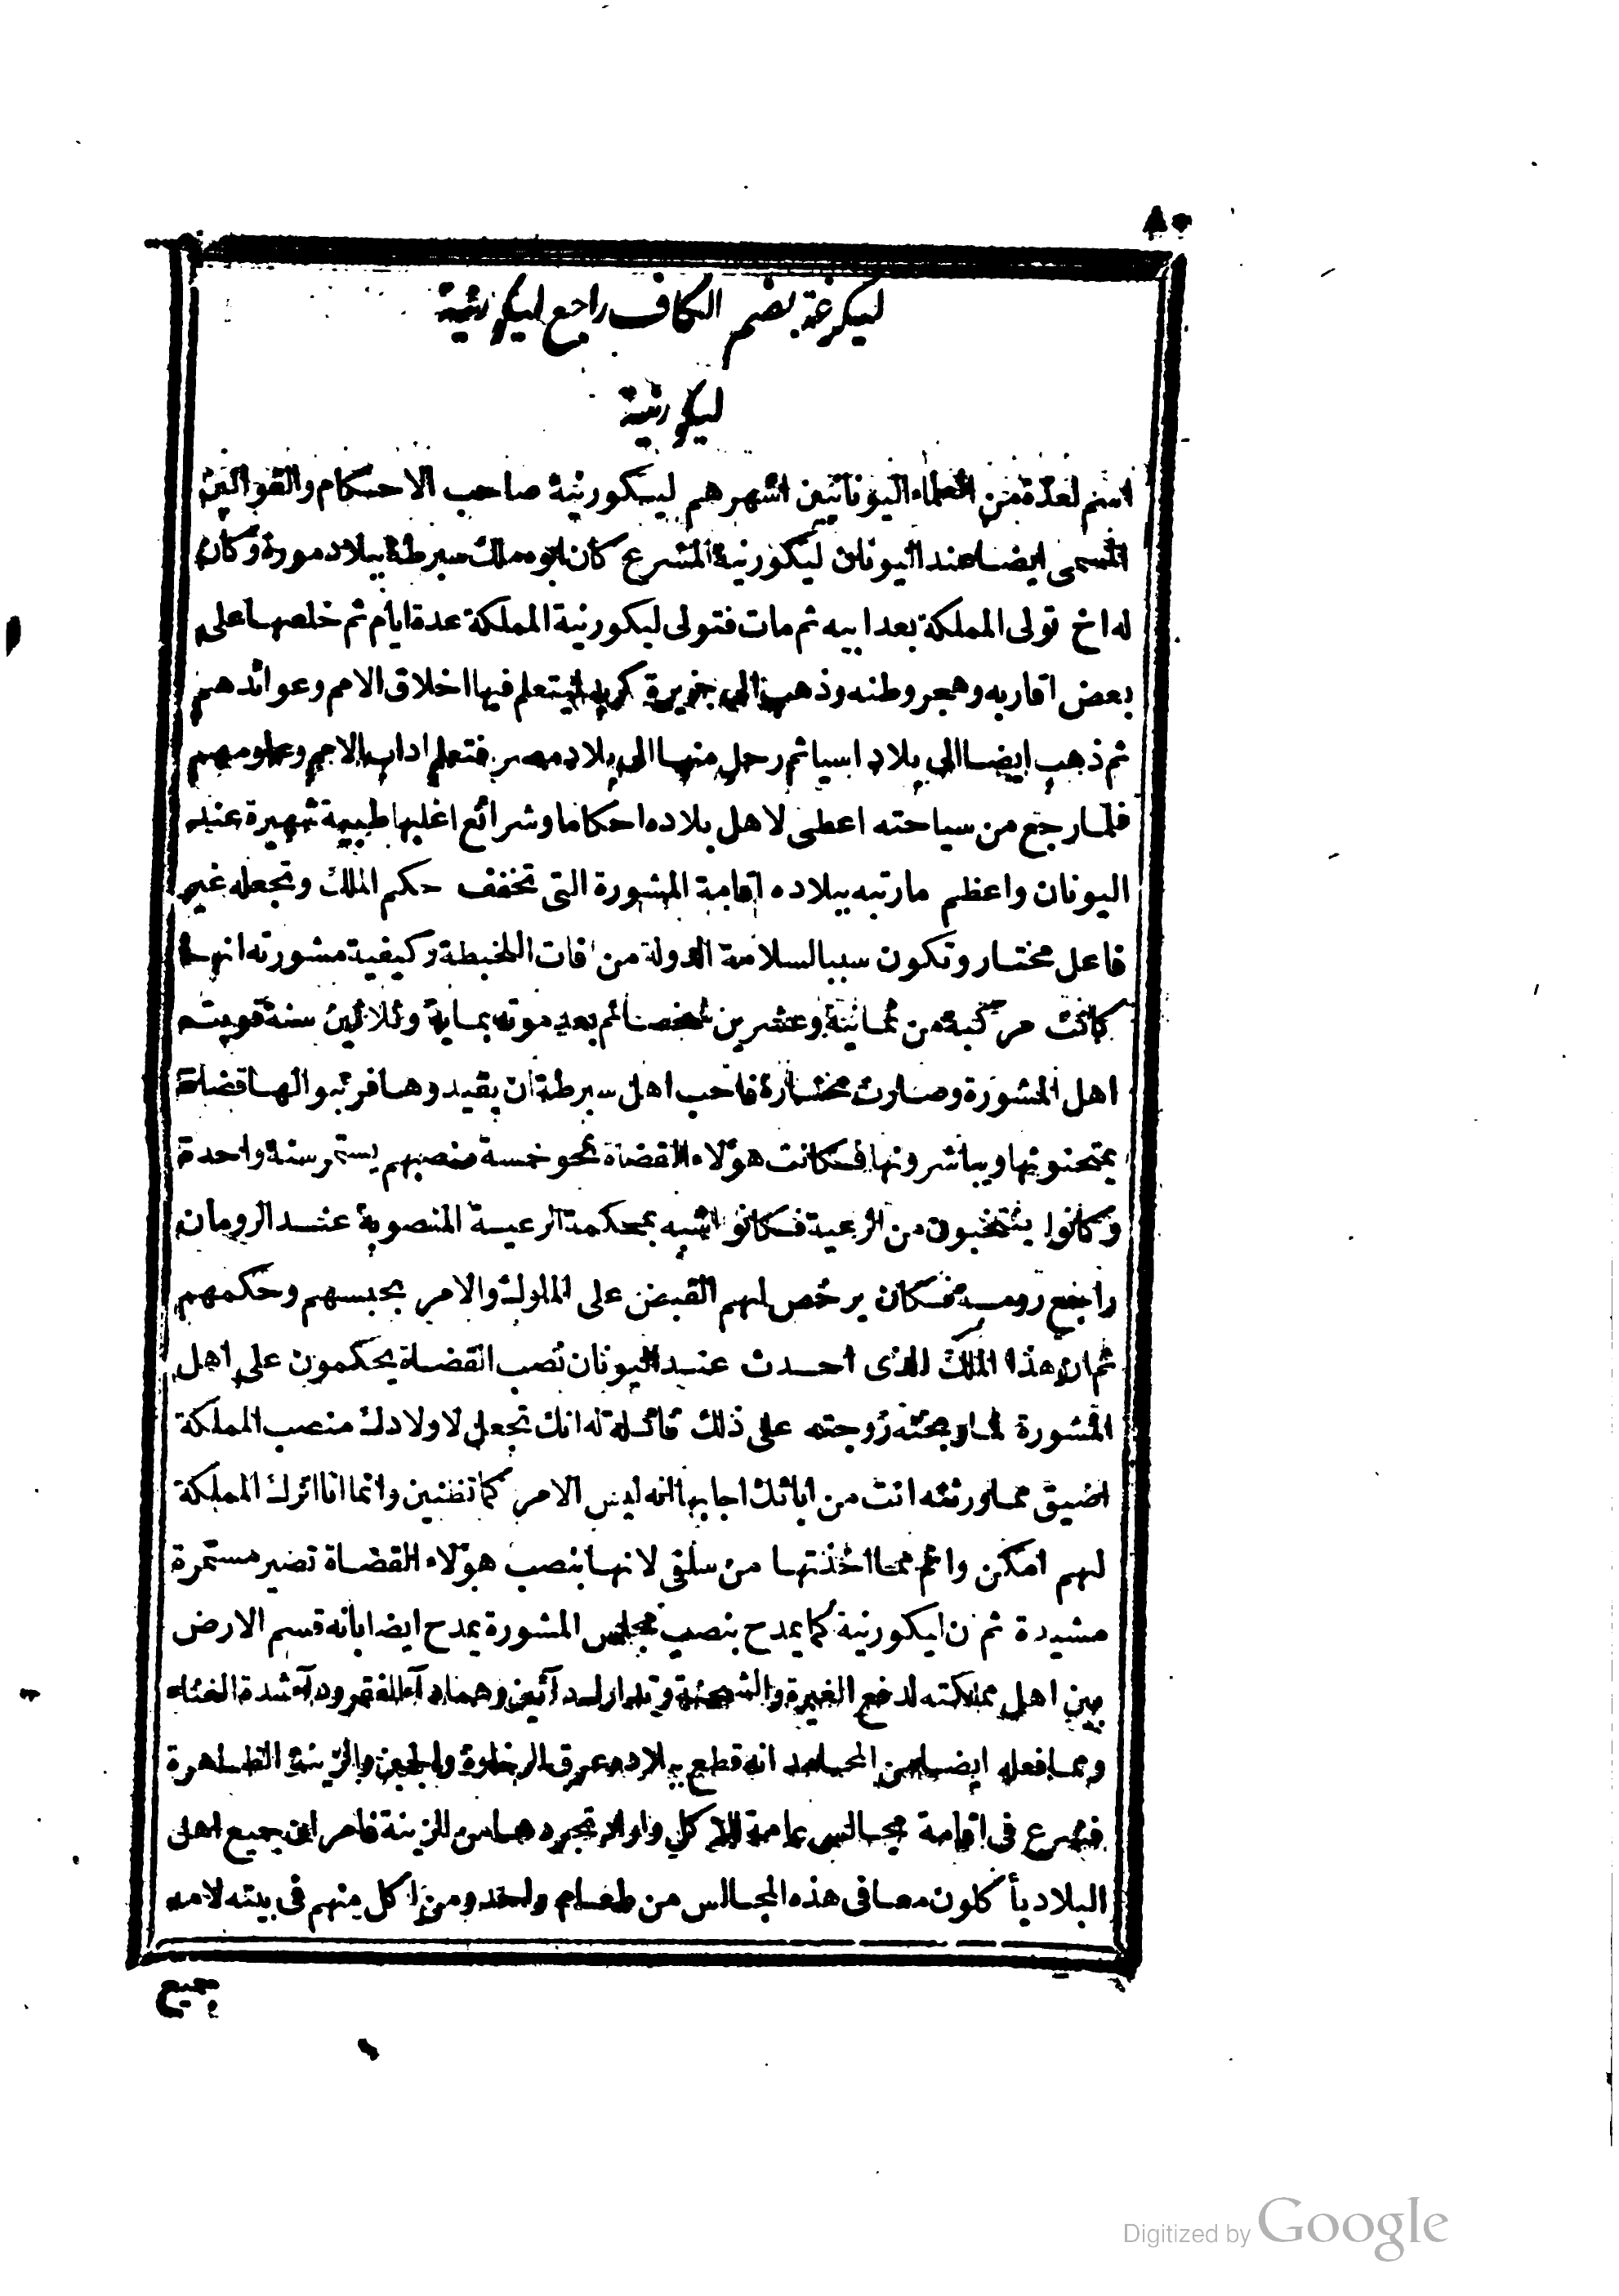 ٨٠
ليكرغة بضم الكاف راجع ليكورنية
ليكورنية
اسم لعدة من العلماء اليونانيين اشهرهم ليكورنية صاحب الاحكام والقوانين
المسمى ايضا عند اليونان ليكورنية المشرع كان ابوه ملك سبرطة ببلاد مورة وكان
له اخ تولى المملكة بعد ابيه ثم مات فتولى ليكورنية المملكة عدة ايام ثم خلعها على
بعض اقاربه وهجر وطنه وذهب الى جزيرة كريد ليتعلم فيها اخلاق الامم وعوائدهم
ثم ذهب ايضا الى بلاد اسيا ثم رحل منها الى بلاد مصر فتعلم اداب الامم وعلومهم
فلما رجع من سياحته اعطى لاهل بلاده احكاما وشرائع اغلبها طيبة شهيرة عند
اليونان واعظم ما رتبه ببلاده اقامة المشورة التى تخفف حكم الملك وتجعله غير
فاعل مختار وتكون سببا لسلامة الدولة من افات الخبطة وكيفية مشورته انها
كانت مركبة من ثمانية وعشرين شخصا ثم بعد موته بماية وثلاثين سنة قويت
اهل المشورة وصارت مختارة فاحب اهل سبرطة ان يقيدوها فرتبوا لها قضاة
يمتحنونها ويباشرونها فكانت هؤلاء القضاة نحو خمسة منصبهم يستمر سنة واحدة
وكانوا ينتخبون من الرعية فكانوا اشبه بمحكمة الرعية المنصوبة عند الرومان
راجع رومية فكان يرخص لهم القبض على الملوك والامر بحبسهم وحكمهم
ثم ان هذا الملك الذى احدث عند اليونان نصب القضاة يحكمون على اهل
المشورة لما وبخته زوجته على ذلك قائلة له انك تجعل لاولادك منصب المملكة
اضيق مما ورثته انت من ابائك اجابها انه ليس الامر كما تظنين وانما انا اترك المملكة
لهم امكن واتم مما اخذتها من سلفى لانها بنصب هؤلاء القضاة تصير مستمرة
مشيدة ثم ن ليكورنية كما يمدح بنصب مجلس المشورة يمدح ايضا بانه قسم الارض
بين اهل مملكته لدفع الغيرة والشحنة وتدارك دآئين وهما دآء الفقر ودآء شدة الغناء
ومما فعله ايضا من المحامد انه قطع ببلاده عرق الرخاوة والجبن والزينة الظاهرة
فشرع فى اقامة مجالس عامة للاكل واراد تجردها من الزينة فامر ان جميع اهل
البلاد يأكلون معا فى هذه المجالس من طعام واحد ومن اكل منهم فى بيته لامه
جميع
Digitized by Google